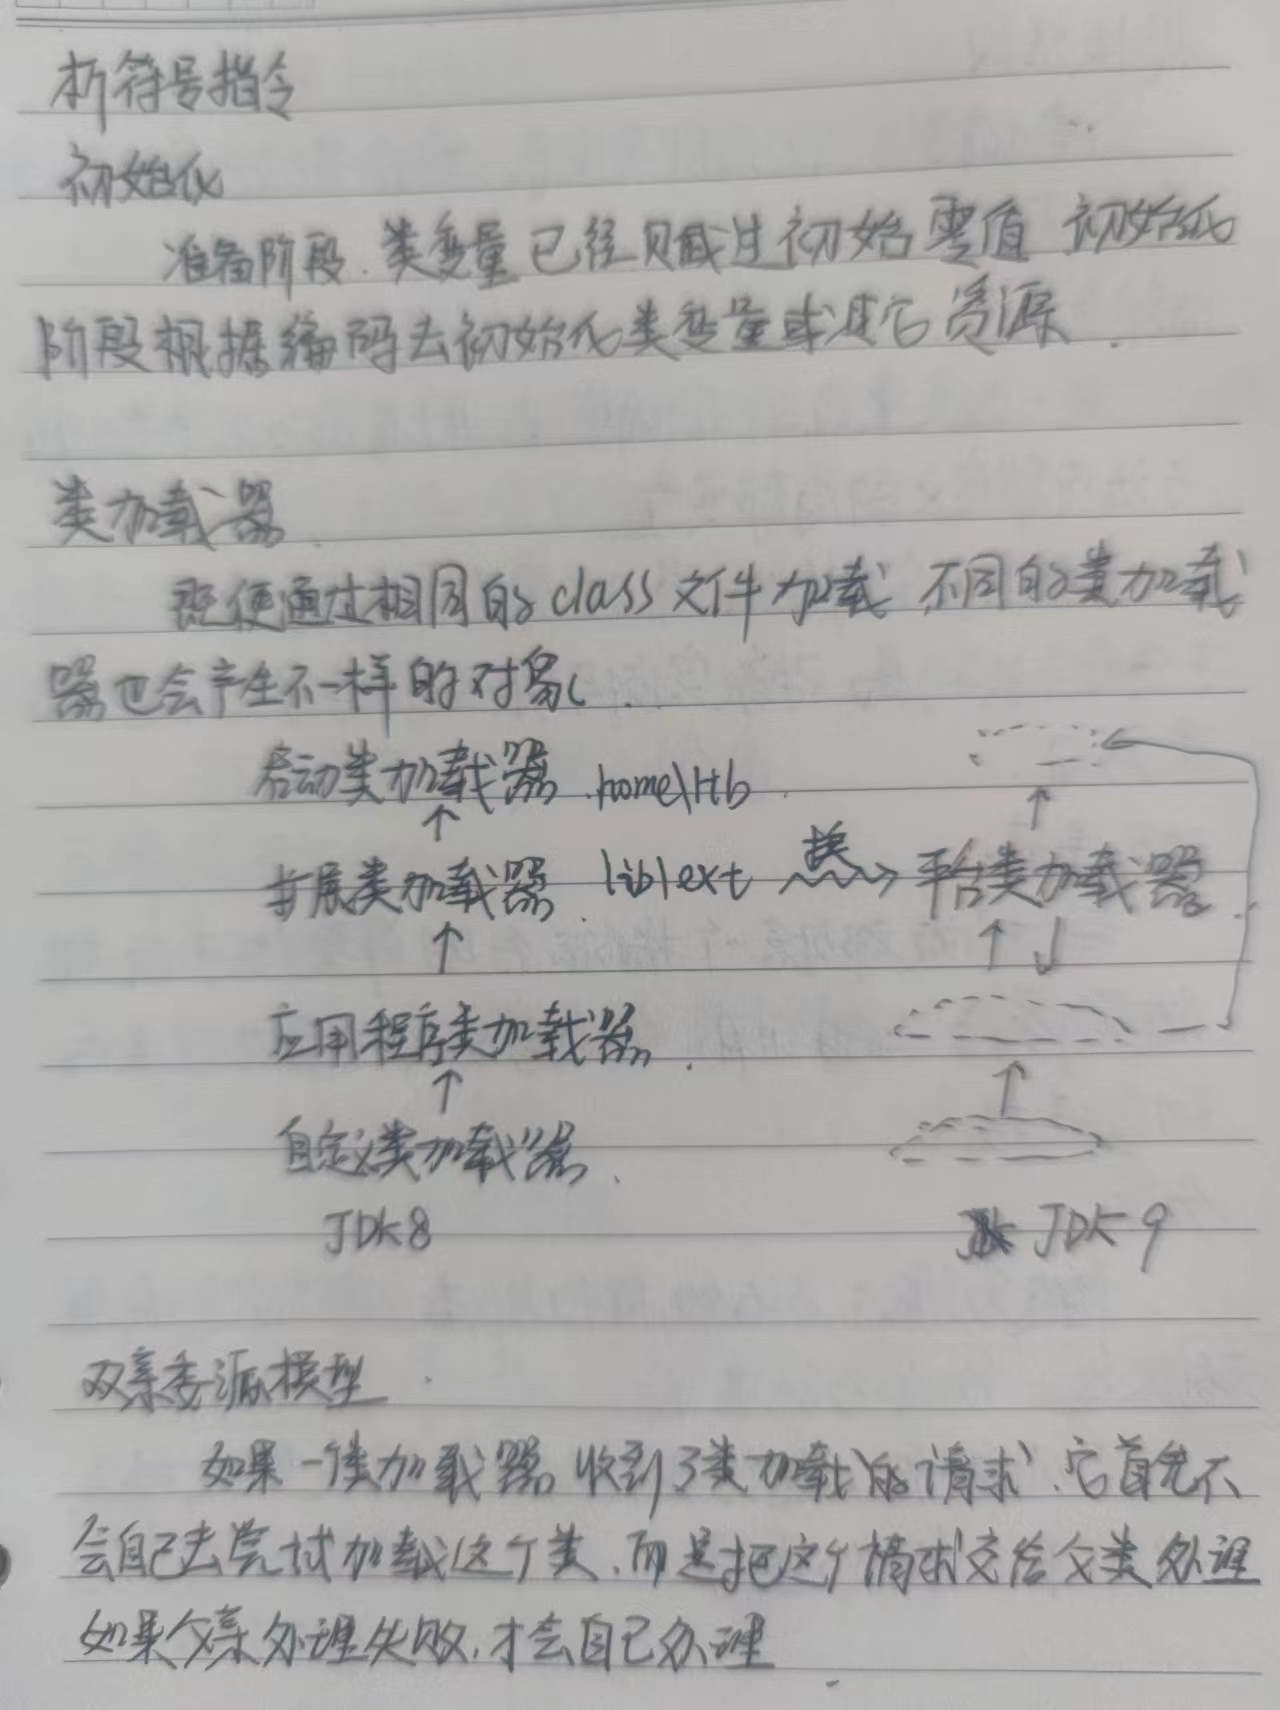 析符号指令
初始化
准备阶段.类变量已经赋过初始零值 初始化
阶段根据编码去初始化类变量或其它资源.
类加载器.
既使通过相同的class文件加载 不同的类加载
器也会产生不一样的对象.
启动类加载器.home\
↑
扩展类加载器.lib\ext → 平台类加载器
↑ ↑ ↓
应用程序类加载器.
↑ ↑
自定义类加载器.
JDK8 JDK9
双亲委派模型.
如果一个类加载器收到了类加载的请求.它首先不
会自己去尝试加载这个类.而是把这个请求交给父类处理
如果父亲处理失败.才会自己处理